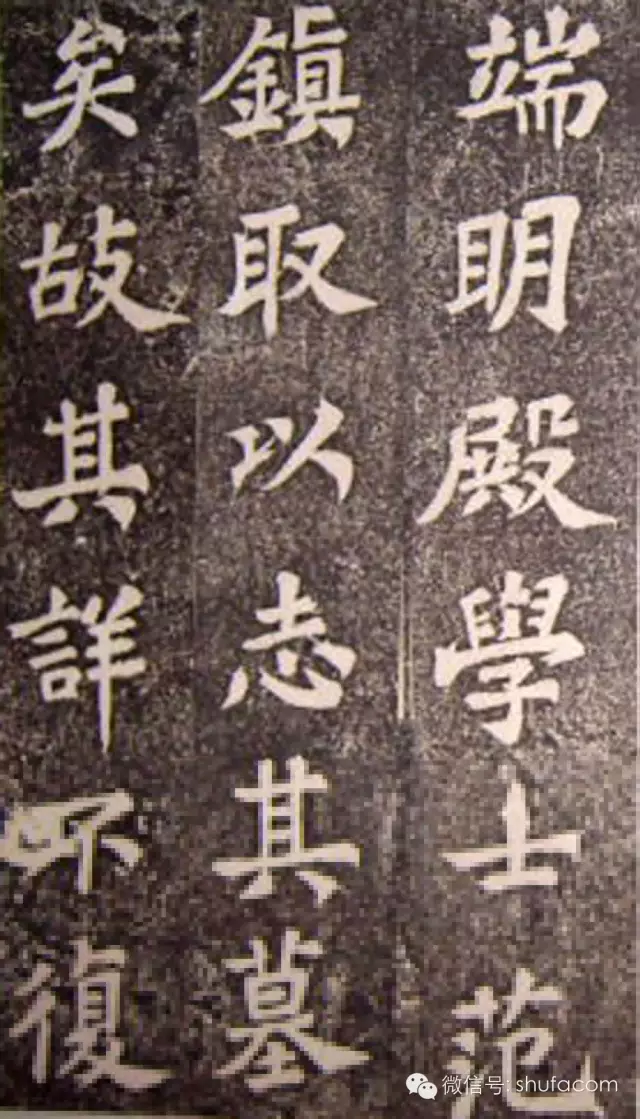 端明殿學士范
鎮取以志其墓
矣故其詳不復
微信号: shufacom